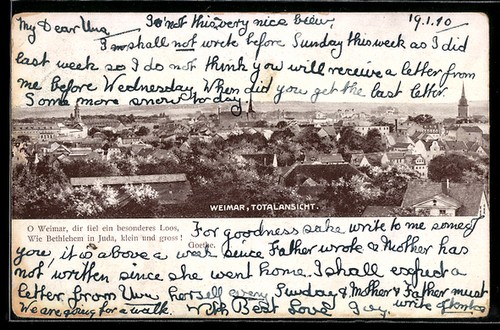 19.1.10
My Dear Una Isn't this a very nice view.
I shall not wrote before Sunday this week as I did
last week so I do not think you will receive a letter from
me before Wednesday. When did you get the last letter.
Some more snow to day
WEIMAR, TOTALANSICHT.
O Weimar, dir fiel ein besonderes Loos,
Wie Bethlehem in Juda, klein und gross!
Goethe.
For goodness sake write to me some of
you, it is above a week since Father wrote & Mother has
not written since she went home. I shall expect a
letter from Una herself every Sunday & Mother & Father must
write often
We are going for a walk. With Best Love